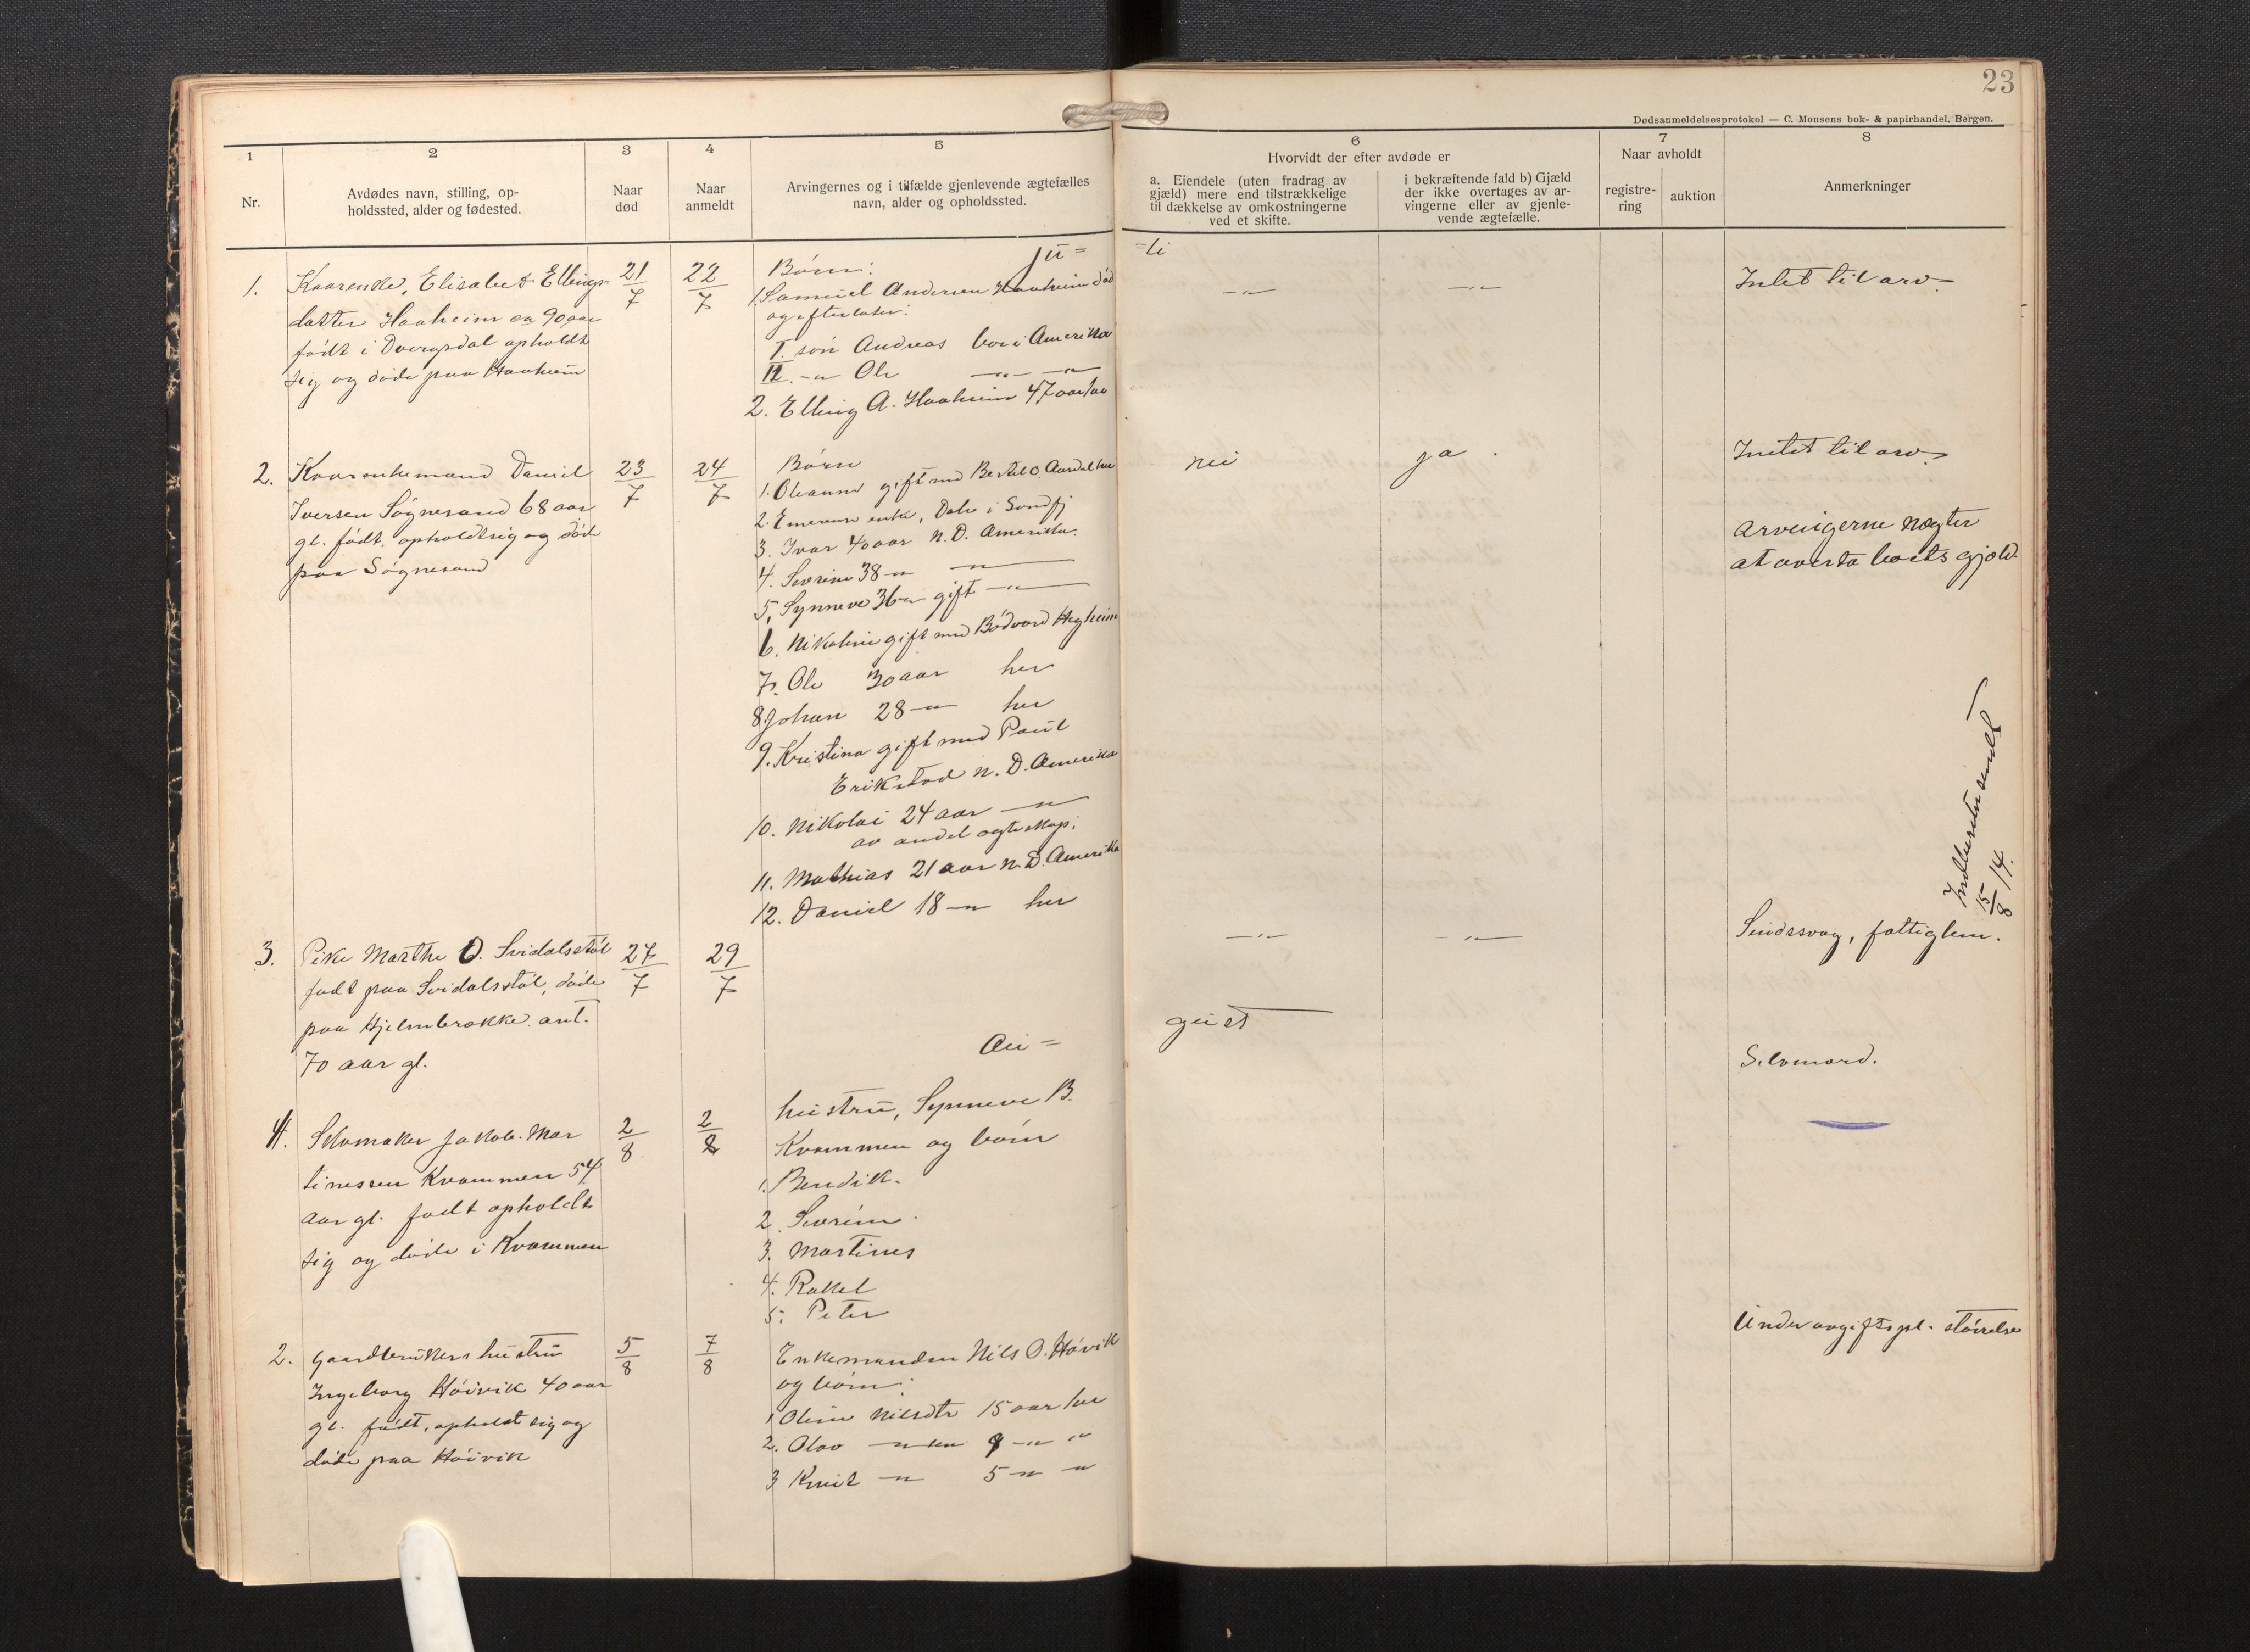 23
Dødsanmeldelsesprotokol — C. Monsens bok- & papirhandel, Bergen.
1
Nr.
2
Avdødes navn, stilling, op-
holdssted, alder og fødested.
3
Naar
død
4
Naar
anmeldt
5
Arvingernes og i tilfælde gjenlevende ægtefælles
navn, alder og opholdssted.
6
Hvorvidt der efter avdøde er
a. Eiendele (uten fradrag av
gjæld) mere end tilstrækkelige
til dækkelse av omkostningerne
ved et skifte.
i bekræftende fald b) Gjæld
der ikke overtages av ar-
vingerne eller av gjenle-
vende ægtefælle.
7
Naar avholdt
registre-
ring
auktion
8
Anmerkninger
Ju=
=li
1. Kaarenke, Elisabet Ellings-
datter Haaheim ca 90 aar
født i Dvergsdal opholdt
sig og døde paa Haaheim
21/7
22/7
Børn:
1. Samuel Andersen Haaheim død
og efterlater:
I. søn Andreas bor i Amerika
II. -"- Ole -"- -"-
2. Elling A. Haaheim 47 aar her
-"- -"-
Intet til arv.
2. Kaarenkemand Daniel
Iversen Søgnesand 68 aar
gl. født, opholdt sig og døde
paa Søgnesand
23/7
24/7
Børn
1. Oleanna gift med Bertel O. Aardal her
2. enke, Dale i Søndfj
3. Ivar 40 aar N. D. Amerika.
4. Severine 38 -"- -"-
5. Synneve 36 -"- gift -"-
6. Nikoline gift med Bødvard Hegheim
7. Ole 30 aar her
8. Johan 28 -"- her
9. Kristina gift med Paul
Erikstad N. D. Amerika
10. Nikolai 24 aar -"-
av andet egteskap:
11. Mathias 21 aar N. D. Amerika
12. Daniel 18 -"- her
nei
ja.
Intet til arv.
Arvingerne negter
at overta boets gjæld.
Indberetn sendt
15/8 14.
3. Pike Marthe O. Svidalsstøl
født paa Svidalsstøl, døde
paa Hjelmbrække. ant.
70 aar gl.
27/7
29/7
-"- -"-
Sindssvag, fattiglem.
Au=
gust
4. Selvmaker Jakob Mar
tinessen Kvammen 54
aar gl. født opholdt
sig og døde i Kvammen
2/8
2/8
hustru, Synneve B.
Kvammen og børn
1. Bendik.
2. Severin.
3. Martines
4. Rakel
5. Peter
Selvmord.
2. Gaardbrukers hustru
Ingeborg Høivik 40 aar
gl. født, opholdt sig og
døde paa Høivik
5/8
7/8
Enkemanden Nils O. Høivik
og børn:
1 Oline Nilsdtr 15 aar her
2. Olav -"- 9 -"- "
3 Knut -"- 5 -"- -"-
Under avgiftspl. størrelse